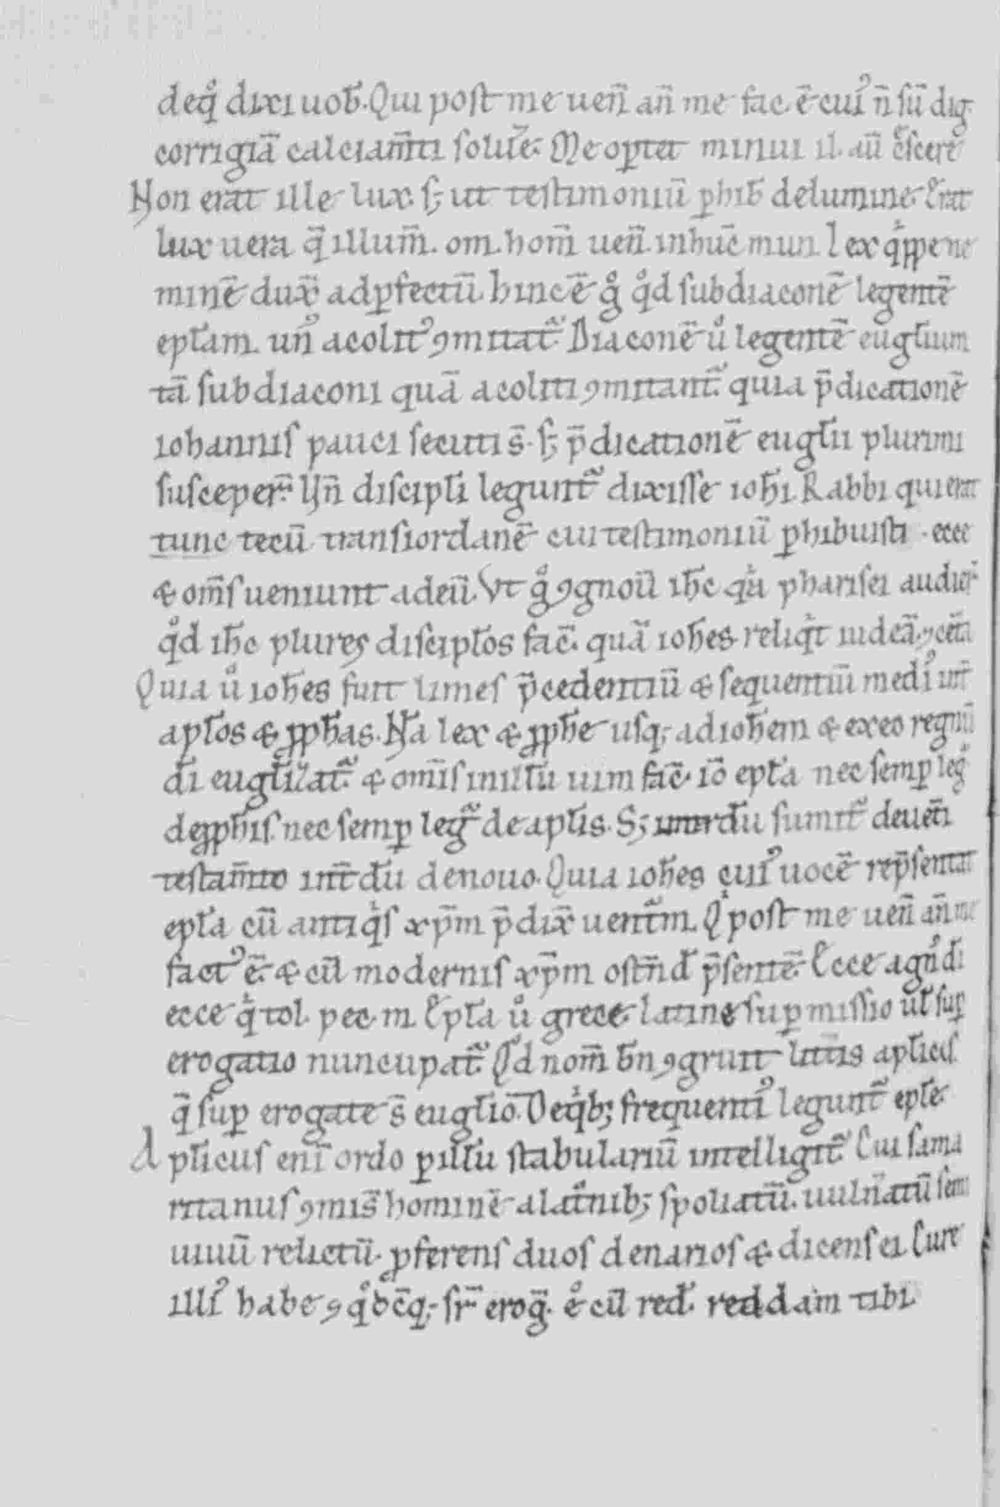 deqͦ dixi uob̄. Qui post me uen̄ an̄ me fac. ē cuiꝰ n̄ sū dig
corrigiā calciam̄ti soluēꝛ̄. Me oꝑtet minui il. aū c̄scere
Non erat ille lux. sꝫ ut testimoniū ꝑhib̄ delumine. Erat
lux uera q̄ illum̄. om. hom̄ uen̄. inhūc mun. Lex qͥꝑpe ne
minē dux̄ adꝑfectū. hinc ē gͦ qͦd subdiaconē legentē
epl̄am. unꝰ acolitꝰ ꝯmitat᷑. Diaconē uͦ legentē eugl̄ium
tā subdiaconi quā acoliti ꝯmitant᷑. quia p̄dicationē
iohannis pauci secuti s̄. sꝫ p̄dicationē eugl̄ii plurimi
susceper̄. Vn̄ discipl̄i legunt᷑ dixisse ioh̄i. Rabbi qui erat
tunc tecū transiordanē cui testimoniū ꝑhibuisti. ecce
& om̄s ueniunt adeū. Vt gͦ ꝯgnou̅ ih̄c qͥa pharisei audier̄
qͦd ih̄c plures discipl̄os fac̄. quā ioh̄es. reliqͥt iudeā. ⁊ cet̄a
Quia uͦ ioh̄es fuit limes p̄cedentiū & sequentiū mediꝰ int̄
apl̄os & ꝓph̄as. Nā lex & ꝓph̄e usqꝫ adioh̄em & exeo regnū
d̄i eugl̄izat᷑. & om̄is inill̄u uim fac̄. iō epl̄a nec semꝑ legͦ
deꝓph̄is. nec semꝑ leg᷑ de apl̄is. Sꝫ int̄dū sumit᷑ deuet̄i
testam̄to int̄dū denouo. Quia ioh̄es cuiꝰ uocē rep̄sentat
epl̄a cū antiqͥs xp̄m p̄dix̄ uent᷑m. Qͥ post me uen̄ an̄ me
factꝰ ē. & cū modernis xp̄m ostn̄d̄ p̄sentē. Ecce agnꝰ d̄i
ecce qͥ tol. pec. m. Epl̄a uͦ grece. latine suꝑmissio ul̄ suꝑ
erogatio nuncupat᷑. Qͦd nom̄ bn̄ ꝯgruit litt̄is apl̄icis
q̄ suꝑ erogate s̄ eugl̄io. Deqͥbꝫ frequentiꝰ legunt᷑ epl̄e
Apl̄icus eni̅ ordo ꝑill̄u stabulariū intelligit᷑. Cui sama
ritanus ꝯmis̄ hominē alat̄nibꝫ spoliatū. uuln̄atū semi
uiuū relictū. ꝓferens duos denarios & dicens ei. Cure
illiꝰ habe ⁊ qͦdc̄qꝫ sr̄ erog̅. eͦ cū red̄. reddam tibi